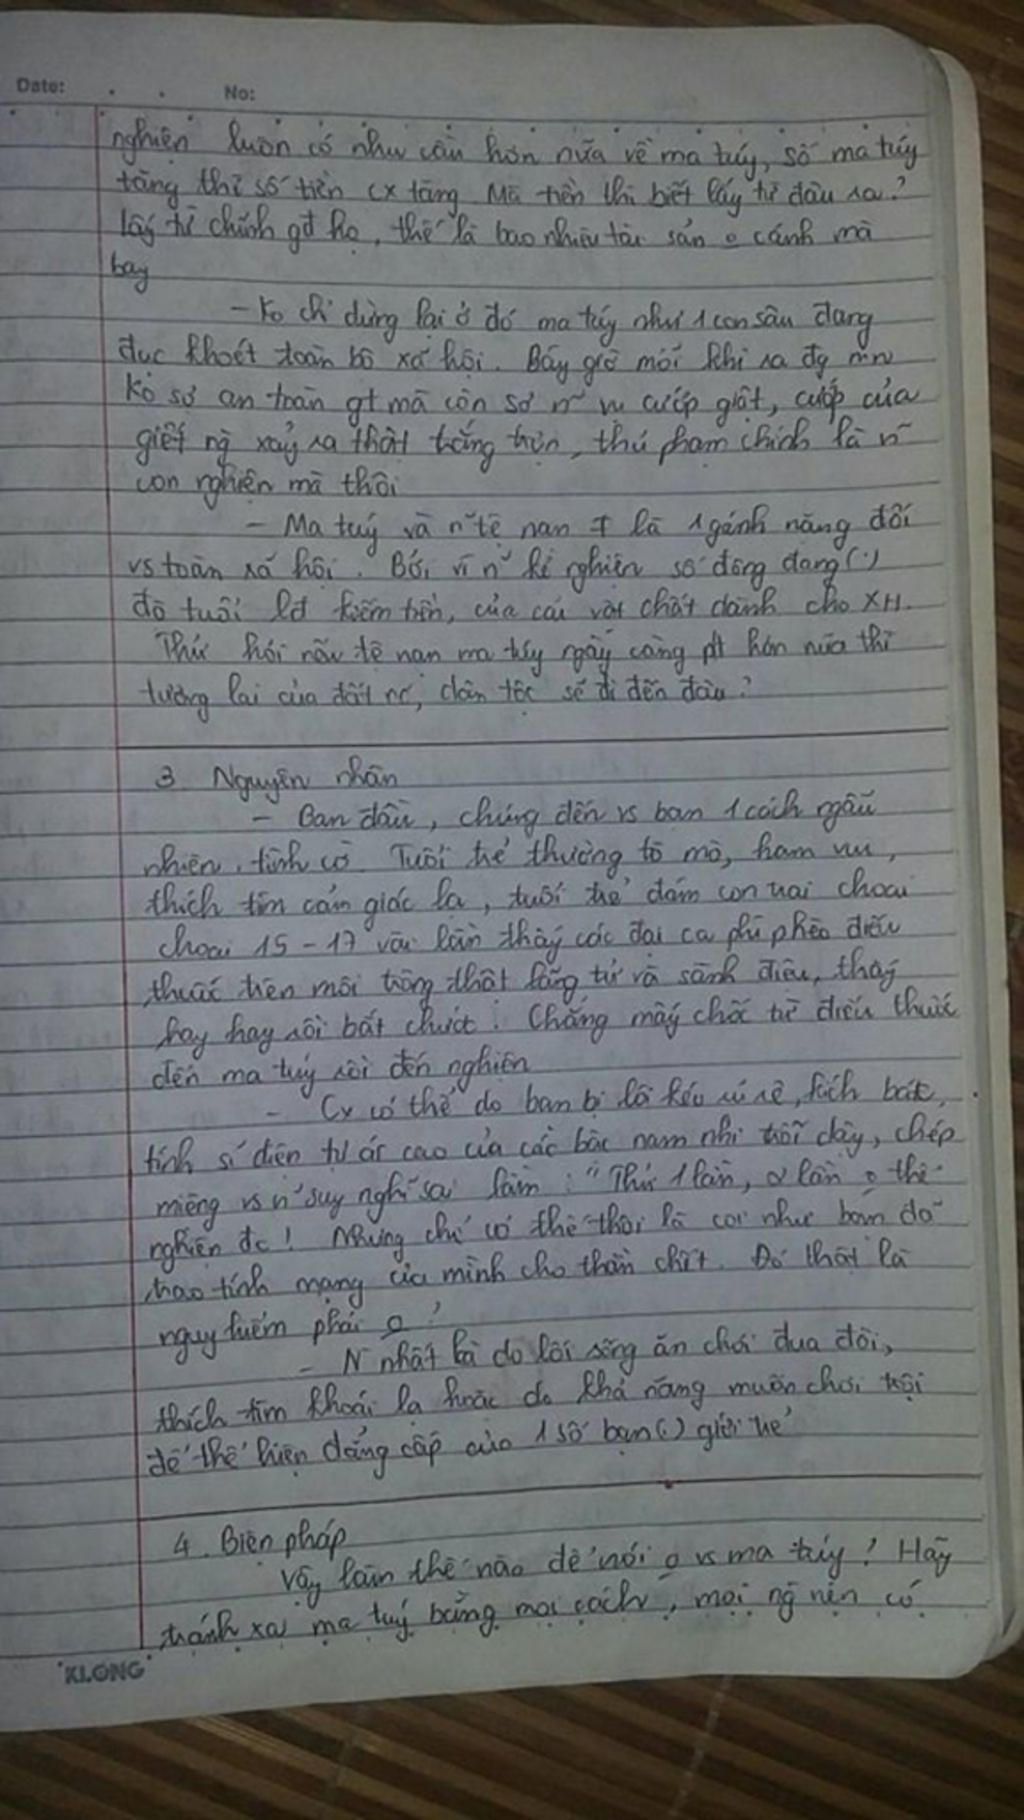 Date: No:
nghiện luôn có nhu cầu hơn nữa về ma túy, số ma túy
tăng thì số tiền cx tăng. Mà tiền thì biết lấy từ đâu ra?
lấy từ chính gđ họ, thế là bao nhiêu tài sản o cánh mà
bay
- Ko chỉ dừng lại ở đó ma túy như 1 con sâu đang
đục khoét toàn bộ xã hội. Bây giờ mỗi khi ra đg mn
ko sợ an toàn gt mà còn sợ n~ vụ cướp giật, cướp của
giết ng xảy ra thật trắng trợn, thủ phạm chính là n~
con nghiện mà thôi
- Ma tuý và n~ tệ nạn ≠ là 1 gánh nặng đối
vs toàn xã hội. Bởi vì n~ kẻ nghiện số đông đang (.)
độ tuổi lđ kiếm tiền, của cải vật chất dành cho XH.
Thử hỏi nếu tệ nạn ma túy ngày càng pt hơn nữa thì
tương lai của đất nc, dân tộc sẽ đi đến đâu?
3. Nguyên nhân
- Ban đầu, chúng đến vs bạn 1 cách ngẫu
nhiên, tình cờ. Tuổi trẻ thường tò mò, ham vui,
thích tìm cảm giác lạ, tuổi trẻ đám con trai choai
choai 15 - 17 vài lần thấy các đại ca phì phèo điếu
thuốc trên môi trông thật lãng tử và sành điệu, thấy
hay hay rồi bắt chước! Chẳng mấy chốc từ điếu thuốc
đến ma túy rồi đến nghiện
- Cx có thể do bạn bị lôi kéo rủ rê, kích bác,
tính sĩ diện tự ái cao của các bậc nam nhi trỗi dậy, chép
miệng vs n~ suy nghĩ sai lầm: "Thử 1 lần, 2 lần o thể
nghiện đc! Nhưng chỉ có thế thôi là coi như bạn đã
trao tính mạng của mình cho thần chết. Đó thật là
nguy hiểm phải o?
- N nhất là do lối sống ăn chơi đua đòi,
thích tìm khoái lạ hoặc do khả năng muốn chơi trội
để thể hiện đẳng cấp của 1 số bạn (.) giới trẻ
4. Biện pháp
Vậy làm thế nào để nói o vs ma túy? Hãy
tránh xa ma tuý bằng mọi cách, mọi ng nên có
KLONG